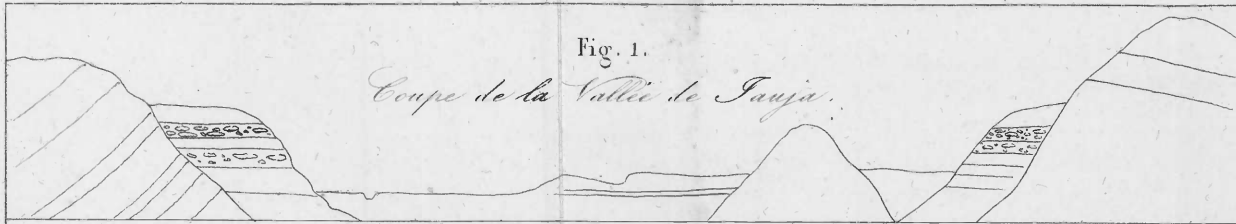 Fig. 1.
Coupe de la Vallée de Jauja.